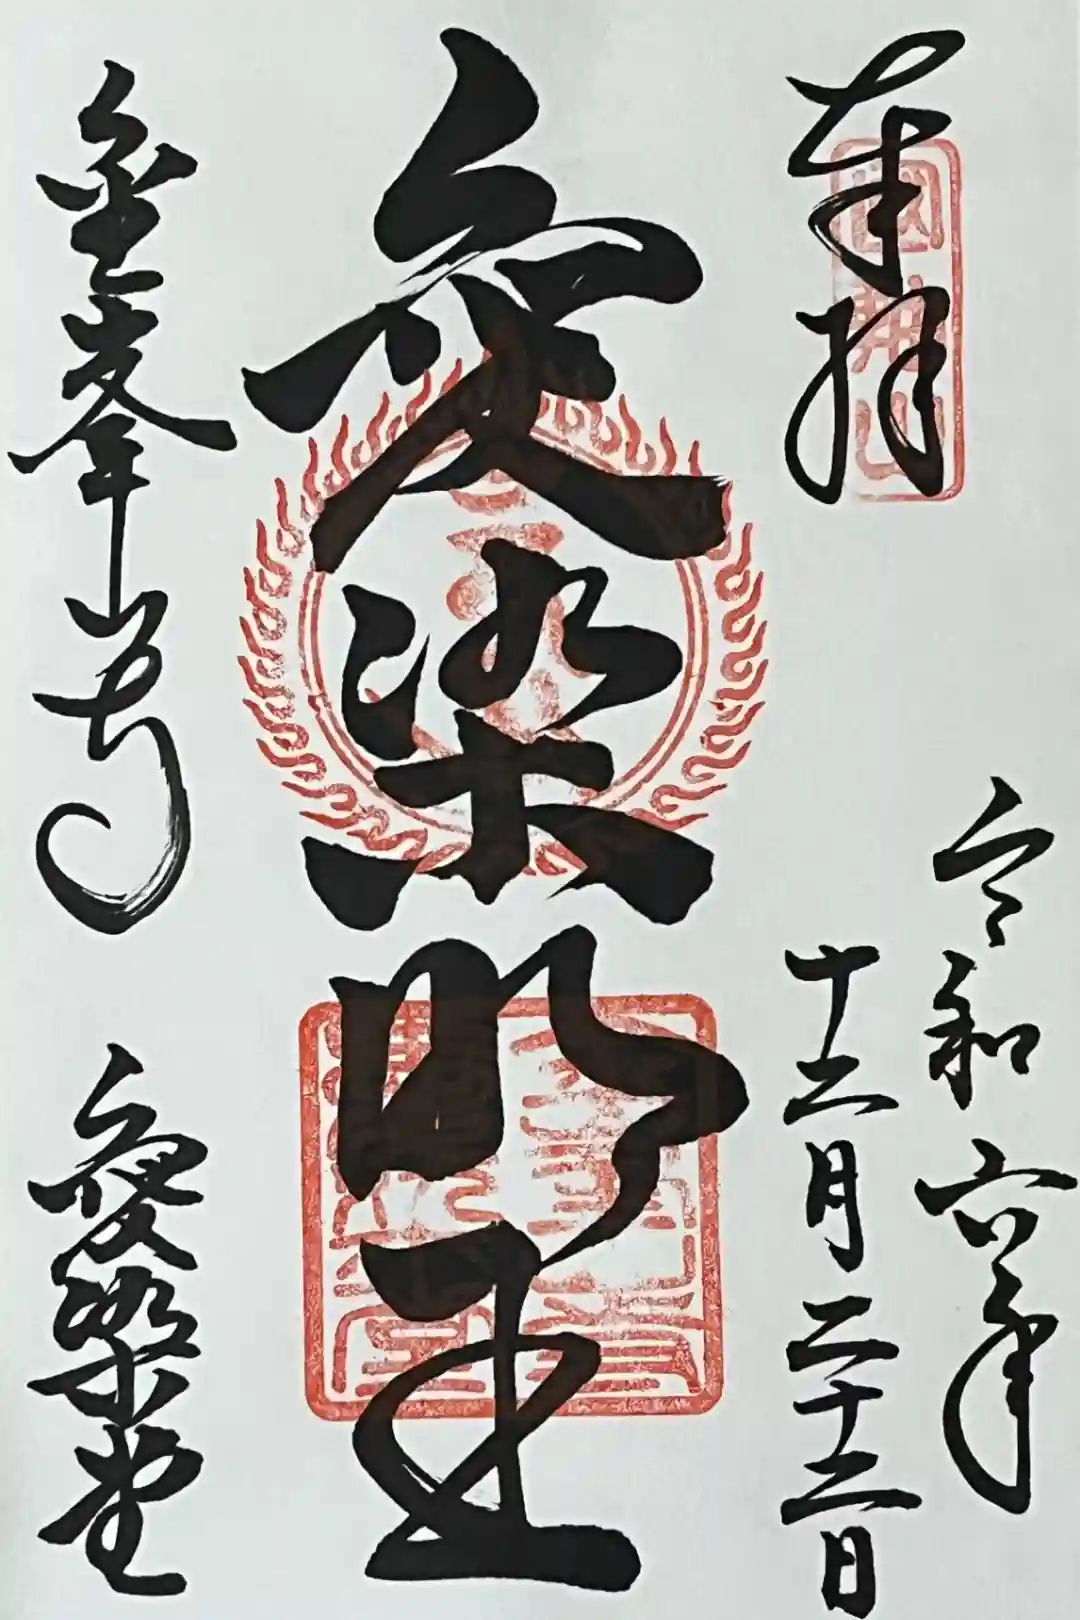 奉拝
令和六年
十二月二十二日
愛染明王
金峯山寺
愛染堂